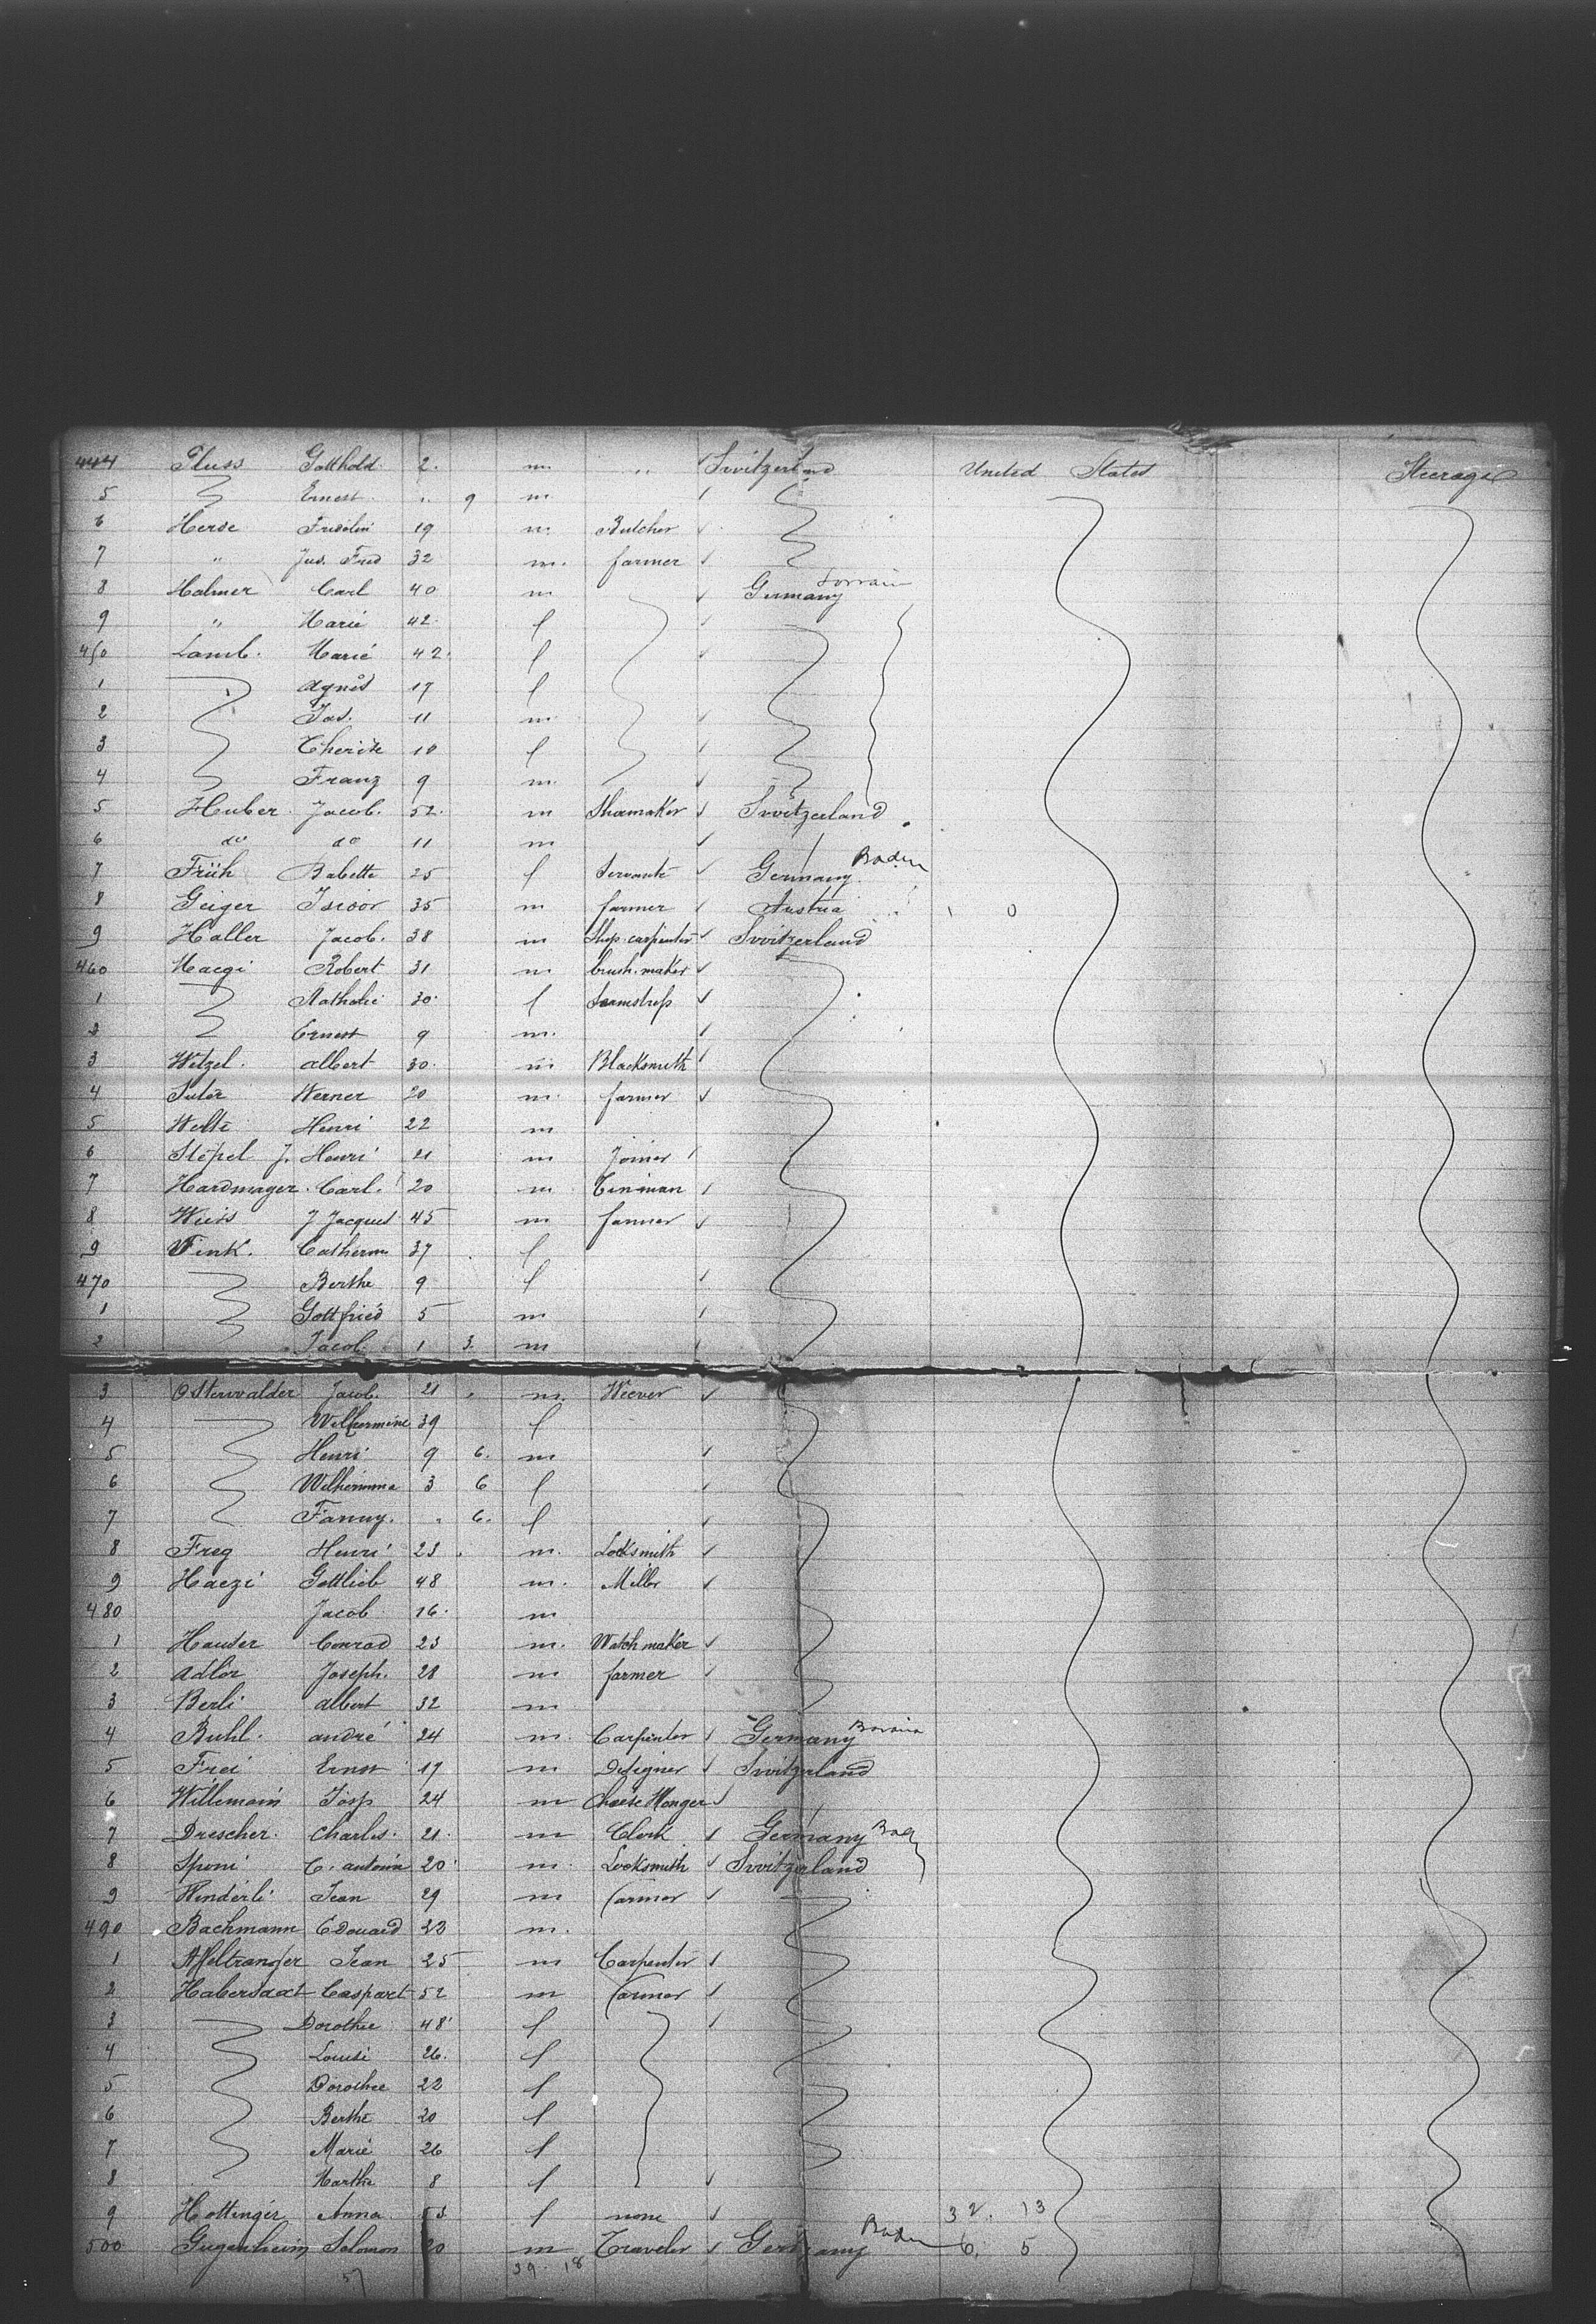 444 Pluss Gotthold 2. m " Switzerland United States Steerage
5 Ernest " 9 m
6 Herse Fridolin 19 m Butcher
7 " Jus. Fred 32 m. farmer
8 Halmer Carl 40 m Germany Lorrain
9 " Marie 42 f
450 Lamb. Marie 42 f
1 Agnès 17 f
2 Jos. 11 m
3 10 f
4 Franz 9 m.
5 Huber Jacob. 52. m Shoemaker Switzerland
6 do do 11 m
7 Früh Babette 25 f Servante Germany Baden
8 Geiger Isidor 35 m farmer Austria 1 0
9 Haller Jacob. 38 m Shop. carpenter Switzerland
460 Naegi Robert 31 m brush. maker
1 Nathalie 30 f Seamstress
2 Ernest 9 m.
3 Wetzel. Albert 30. m Blacksmith
4 Suter Werner 20 m. farmer
5 Welti Henri 22 m
6 Stepel J. Henri 21 m Joiner
7 Hardmayer Carl. 20 m Tinman
8 Weiss J Jacques 45 m farmer
9 Fink. Catherine 37 f
470 Berthe 9 f
1 Gottfried 5 m
2 Jacob 1 3 m
3 Osterwalder Jacob. 21 m. Wiever
4 Wilhermine 39 f
5 Henri 9 6. m
6 Wilhemina 3 6 f
7 Fanny. " 6. f
8 Frey Henri 23 m. Locksmith
9 Haezi Gottlieb 48 m. Miller
480 Jacob 16. m
1 Hauser Conrad 23 m. Watchmaker
2 Adler Joseph. 28 m farmer
3 Berli Albert 32 m
4 Buhl. André 24 m. Carpenter Germany Bavaria
5 Frei Ernst 17 m Designer Switzerland
6 Willemain Josp 24 m Cheese Monger
7 Drescher. Charles. 21. m Clerk Germany
8 Sponi C. Antoine 20 m. Locksmith Switzerland
9 Winderli Jean 29 m farmer
490 Bachmann Edouard 23 m.
1 Affeltranger Jean 25 m Carpenter
2 Habersaat Caspart 52 m farmer
3 Dorothee 48 f
4 Louise 26. f
5 Dorothee 22 f
6 Berthe 20 f
7 Marie 26 f
8 Marthe 8 f
9 Hottinger Anna f none 32. 13
500 Gugenheim Salomon 20 m Traveler Germany Baden 6. 5
57 39. 18